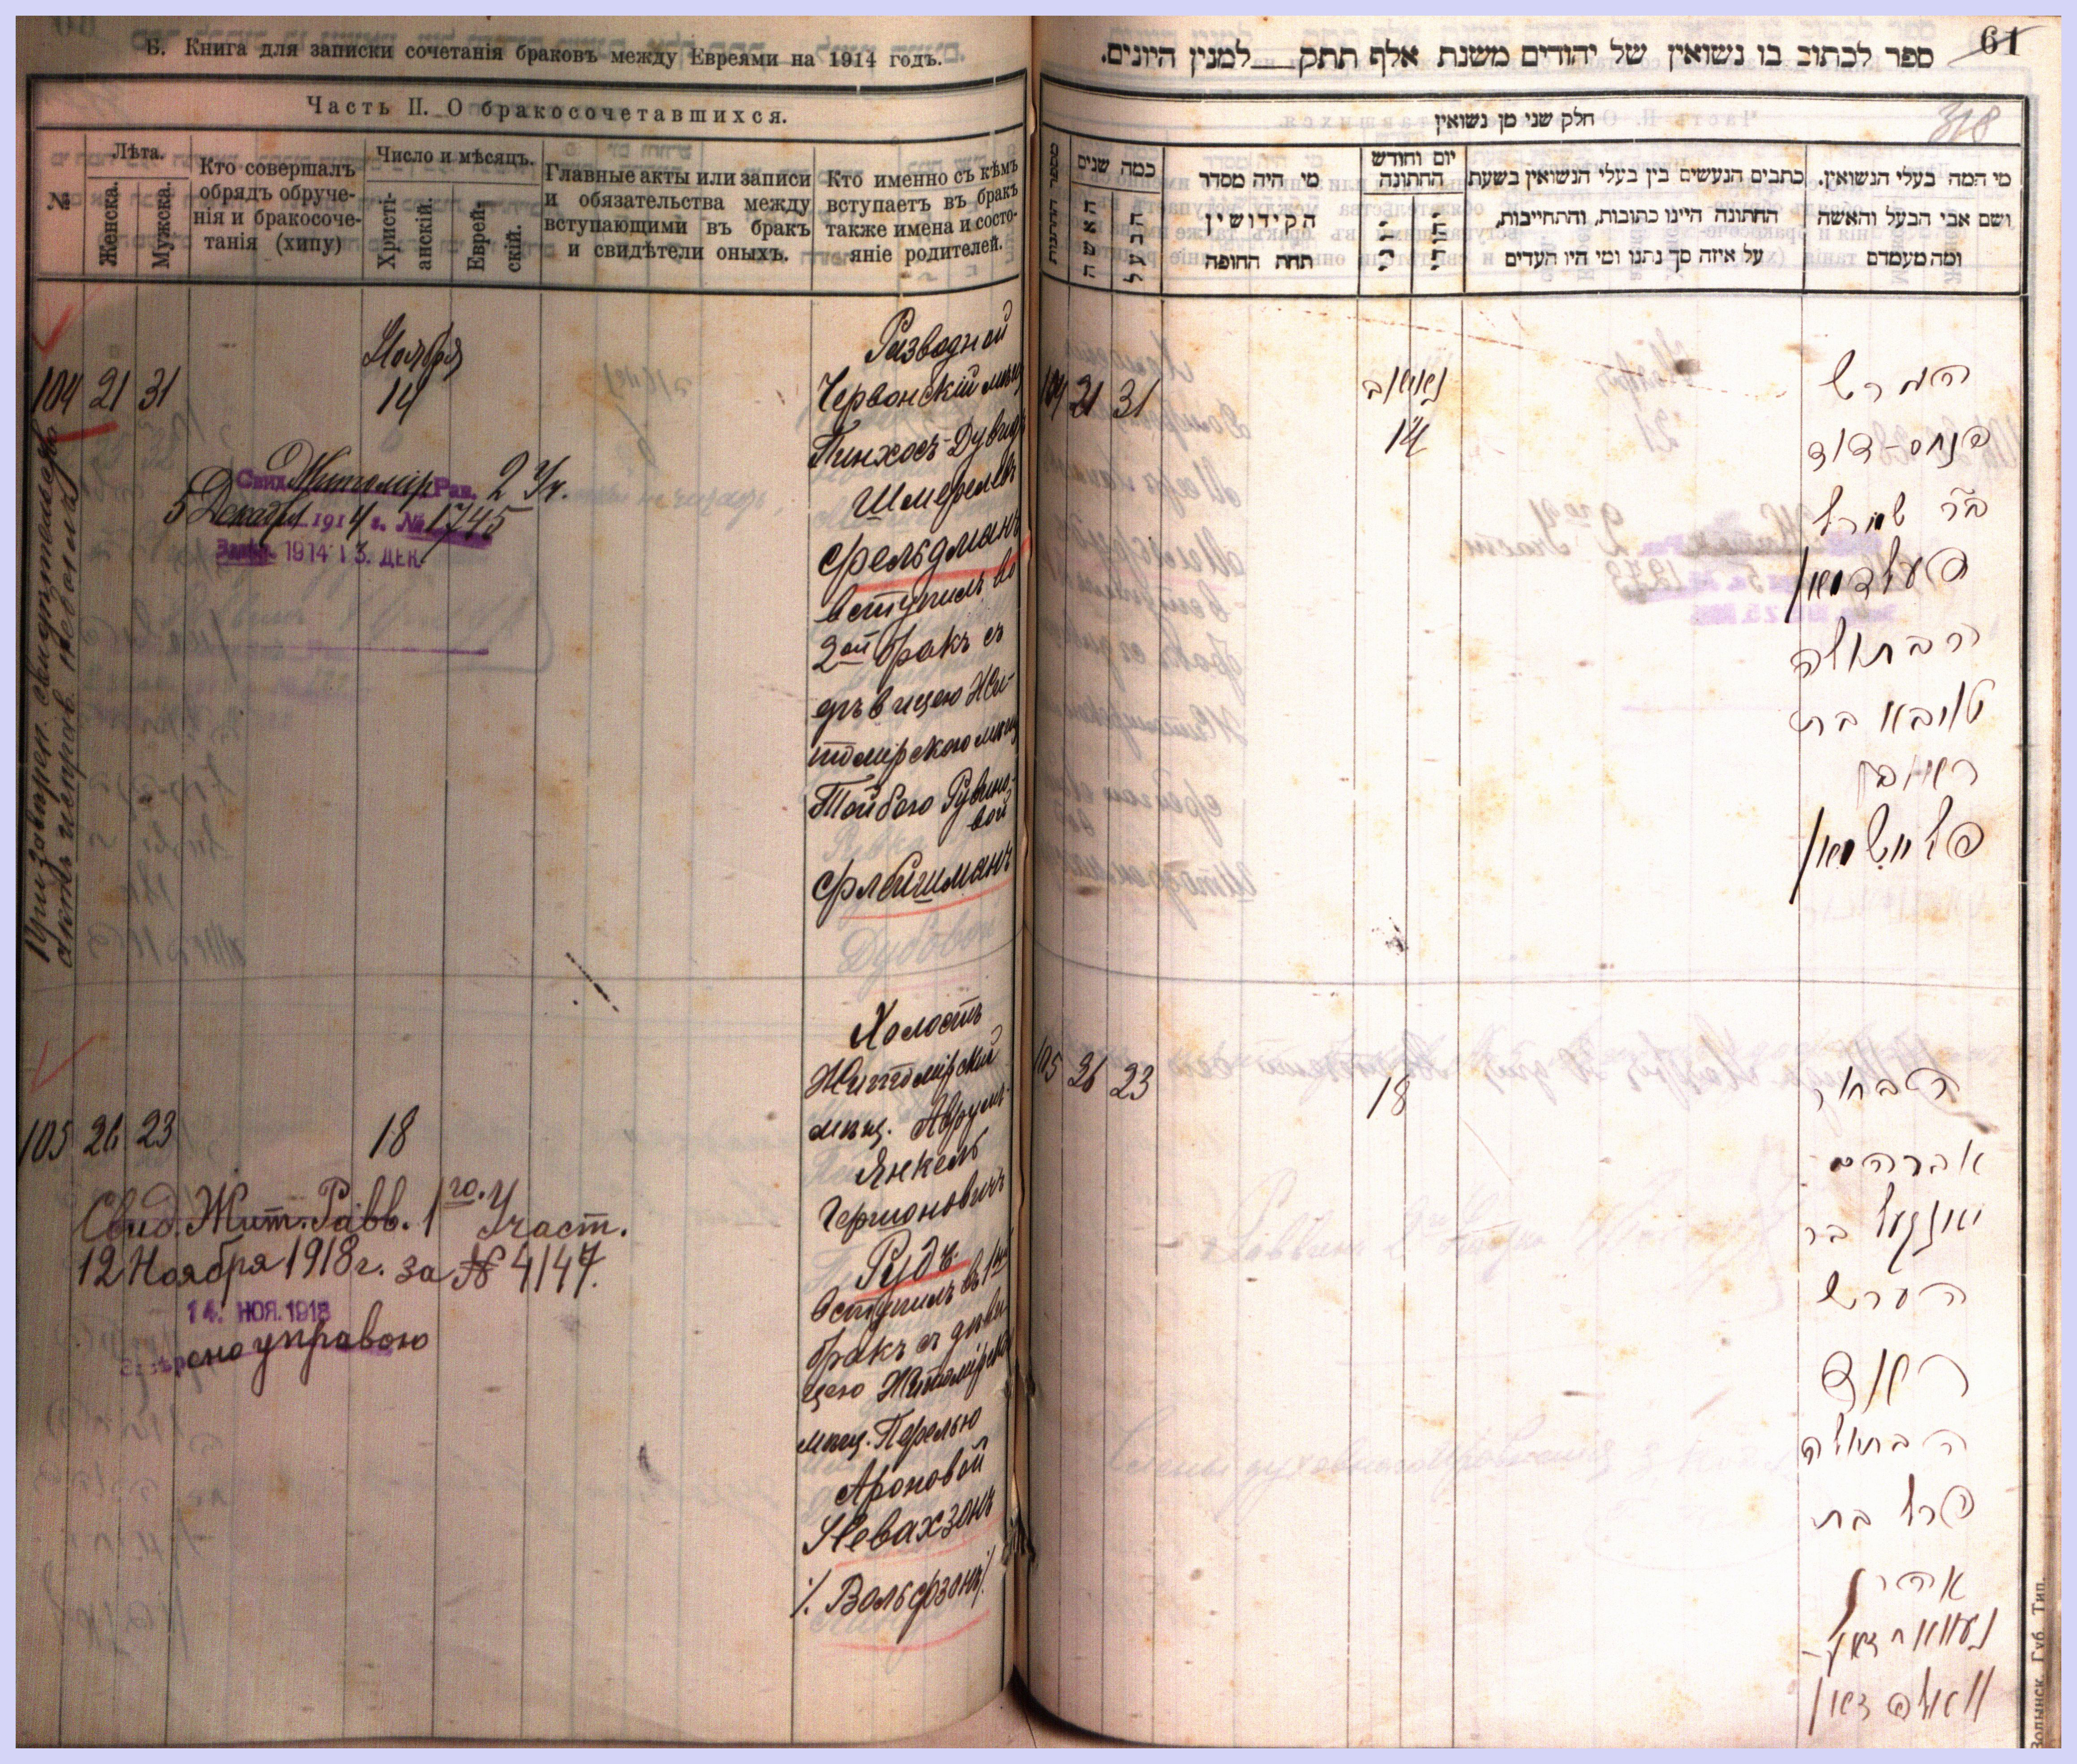 Б. Книга для записки сочетанія браковъ между Евреями на 1914 годъ.
Часть II. О бракосочетавшихся.
№
Лѣта.
Женска.
Мужска.
Кто совершалъ
обрядъ обруче-
нія и бракосоче-
танія (хипу)
Число и мѣсяцъ.
Христі-
анскій.
Еврей-
скій.
Главные акты или записи
и обязательства между
вступающими въ бракъ
и свидѣтели оныхъ.
Кто именно съ кѣмъ
вступаетъ въ бракъ
также имена и состо-
яніе родителей.
104 21 31
Ноября
14
Свид. Житомір Рав. 2 Уч.
5 Декабря 1914 г. № 1745
1914 13. ДЕК.
Разводной
Червонскій мѣщ
Пинхосъ-Дувидъ
Шмерелевъ
Фельдманъ
вступилъ во
2ой бракъ съ
дѣвицею Жи-
томірскою мѣщ
Тойбою Рувино-
вой
Флейшманъ
105 26 23
18
Свид. Жит. Равв. 1го. Участ.
12 Ноября 1918 г. за № 4147.
14. НОЯ. 1918
управою
Холостъ
Житомірскій
мѣщ. Аврумъ-
Янкель
Гершоновичъ
Рудъ
вступилъ въ 1й
бракъ съ дѣви-
цею Житомірской
мѣщ. Перелью
Ароновой
Невахзонъ
/. Вольфзонъ/.
61
ספר לכתוב בו נשואין של יהודים משנת אלף תתק למנין היונים.
318
חלק שני מן נשואין
מספר החתונות
כמה שנים
האשה
הבעל
מי היה מסדר
הקידושין
תחת החופה
יום וחודש
החתונה
כתבים הנעשים בין בעלי הנשואין בשעת
החתונה היינו כתובות, והתחייבות,
על איזה סך נתנו ומי היו העדים
מי המה בעלי הנשואין,
ושם אבי הבעל והאשה
ומה מעמדם
104 21 31
נאיאב
14
הגרש
פנחס-דוד
ב״ר שמרל
פעלדמאן
הבתולה
טויבא בת
ראובן
פליישמאן
105 26 23
18
הבחור
אברהם
יאנקעל בר
הערש
רוד
הבתולה
פרל בת
אהרן
נעוואחזאן-
וואלפזאן
Волынск. Губ. Тип.